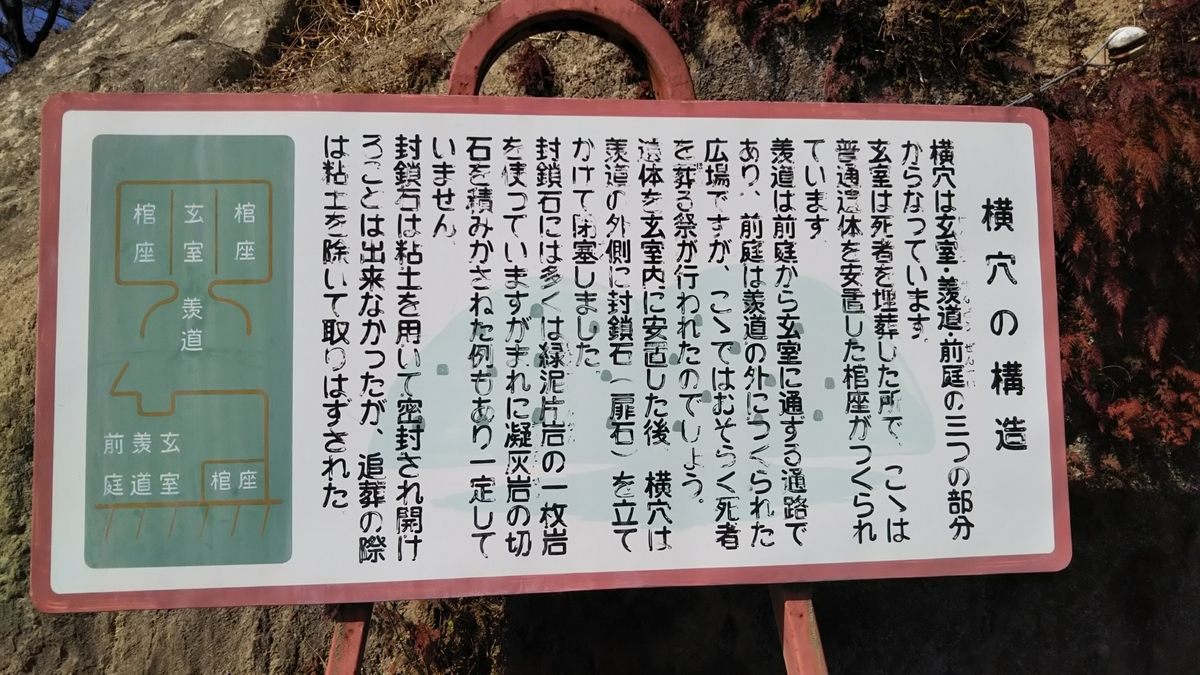 横穴の構造
横穴は玄室・羨道・前庭の三つの部分
からなっています。
玄室は死者を埋葬した所で、こゝは
普通遺体を安置した棺座がつくられ
ています
羨道は前庭から玄室に通ずる通路で
あり、前庭は羨道の外につくられた
広場ですが、こゝではおそらく死者
を葬る祭が行われたのでしょう。
遺体を玄室内に安置した後、横穴は
羨道の外側に封鎖石（扉石）を立て
かけて閉塞しました
封鎖石には多くは緑泥片岩の一枚岩
を使っていますがまれに凝灰岩の切
石を積みかさねた例もあり一定して
いません
封鎖石は粘土を用いて密封され開け
ることは出来なかったが、追葬の際
は粘土を除いて取りはずされた
棺座
玄室
棺座
羨道
前庭
羨道
玄室
棺座